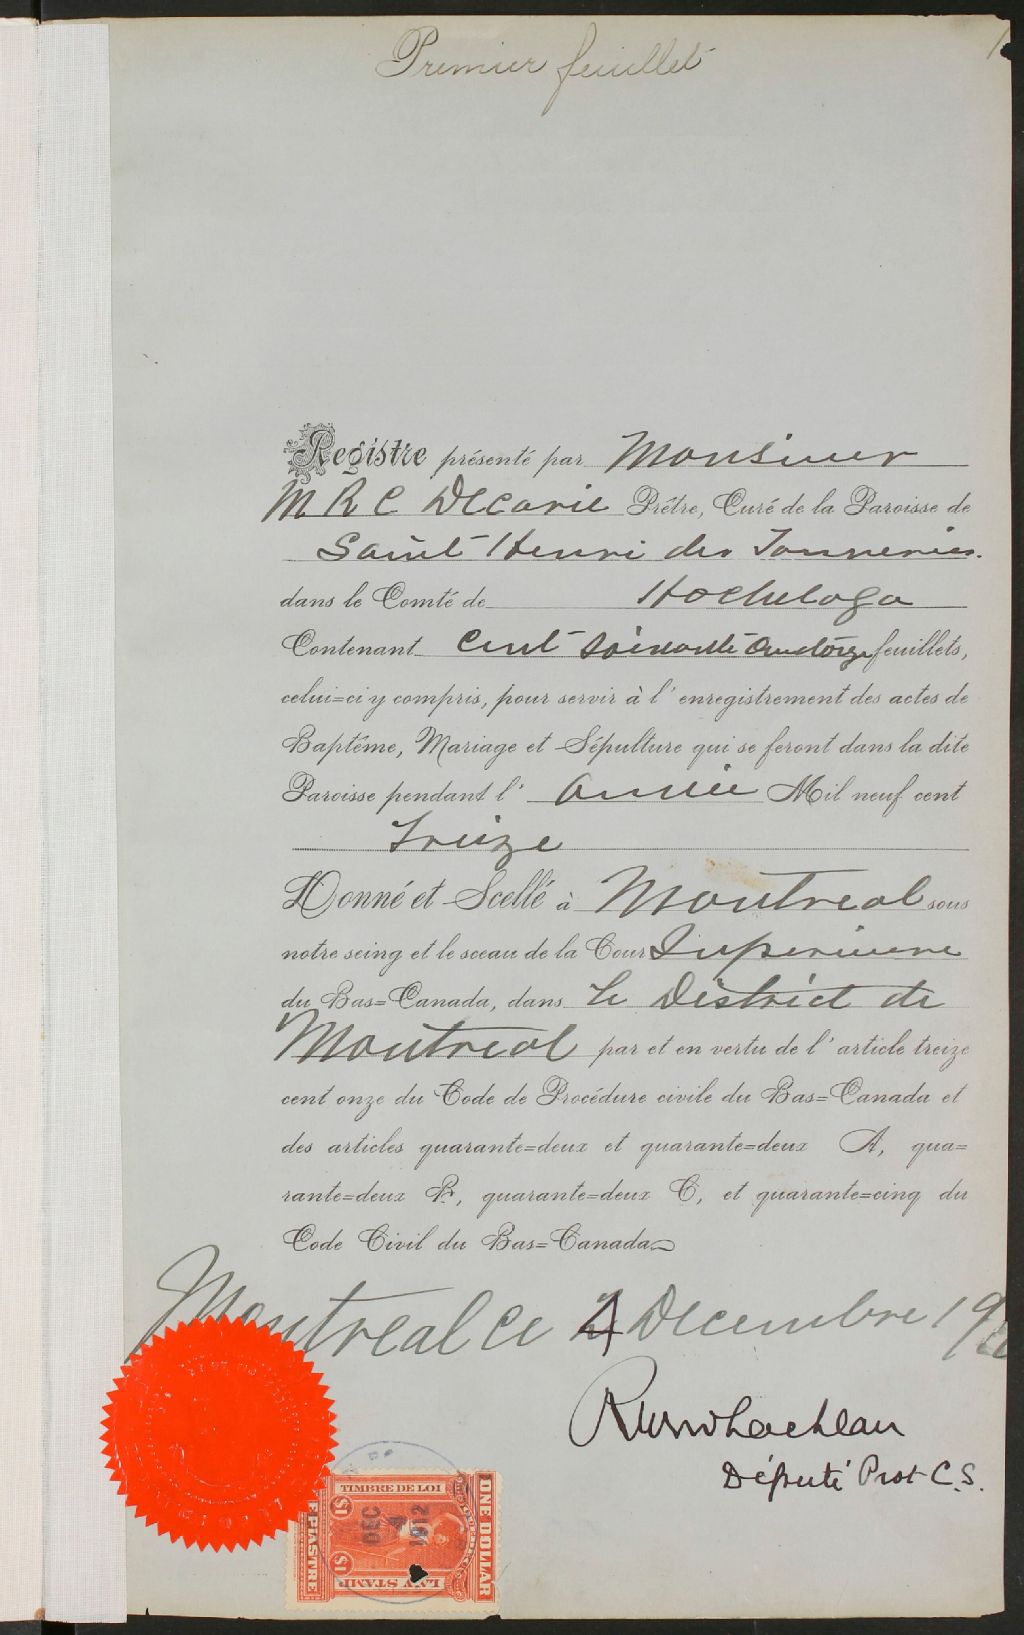 Premier feuillet
1
Registre présenté par Monsieur
M R C Décarie Prêtre, Curé de la Paroisse de
Saint Henri des Tanneries.
dans le Comté de Hochelaga
Contenant Cent Soixante Quatorze feuillets,
celui=ci y compris, pour servir à l'enregistrement des actes de
Baptême, Mariage et Sépulture qui se feront dans la dite
Paroisse pendant l' année Mil neuf cent
treize
Donné et Scellé à Montreal sous
notre seing et le sceau de la Cour Superieure
du Bas=Canada, dans le District de
Montreal par et en vertu de l'article treize
cent onze du Code de Procédure civile du Bas=Canada et
des articles quarante=deux et quarante=deux A, qua=
rante=deux B, quarante=deux C, et quarante=cinq du
Code Civil du Bas=Canada
Montreal ce 4 Decembre 191
Député Prot C.S.
TIMBRE DE LOI
$1
DEC 4 1912
ONE DOLLAR
PIASTRE
$1
LAW STAMP